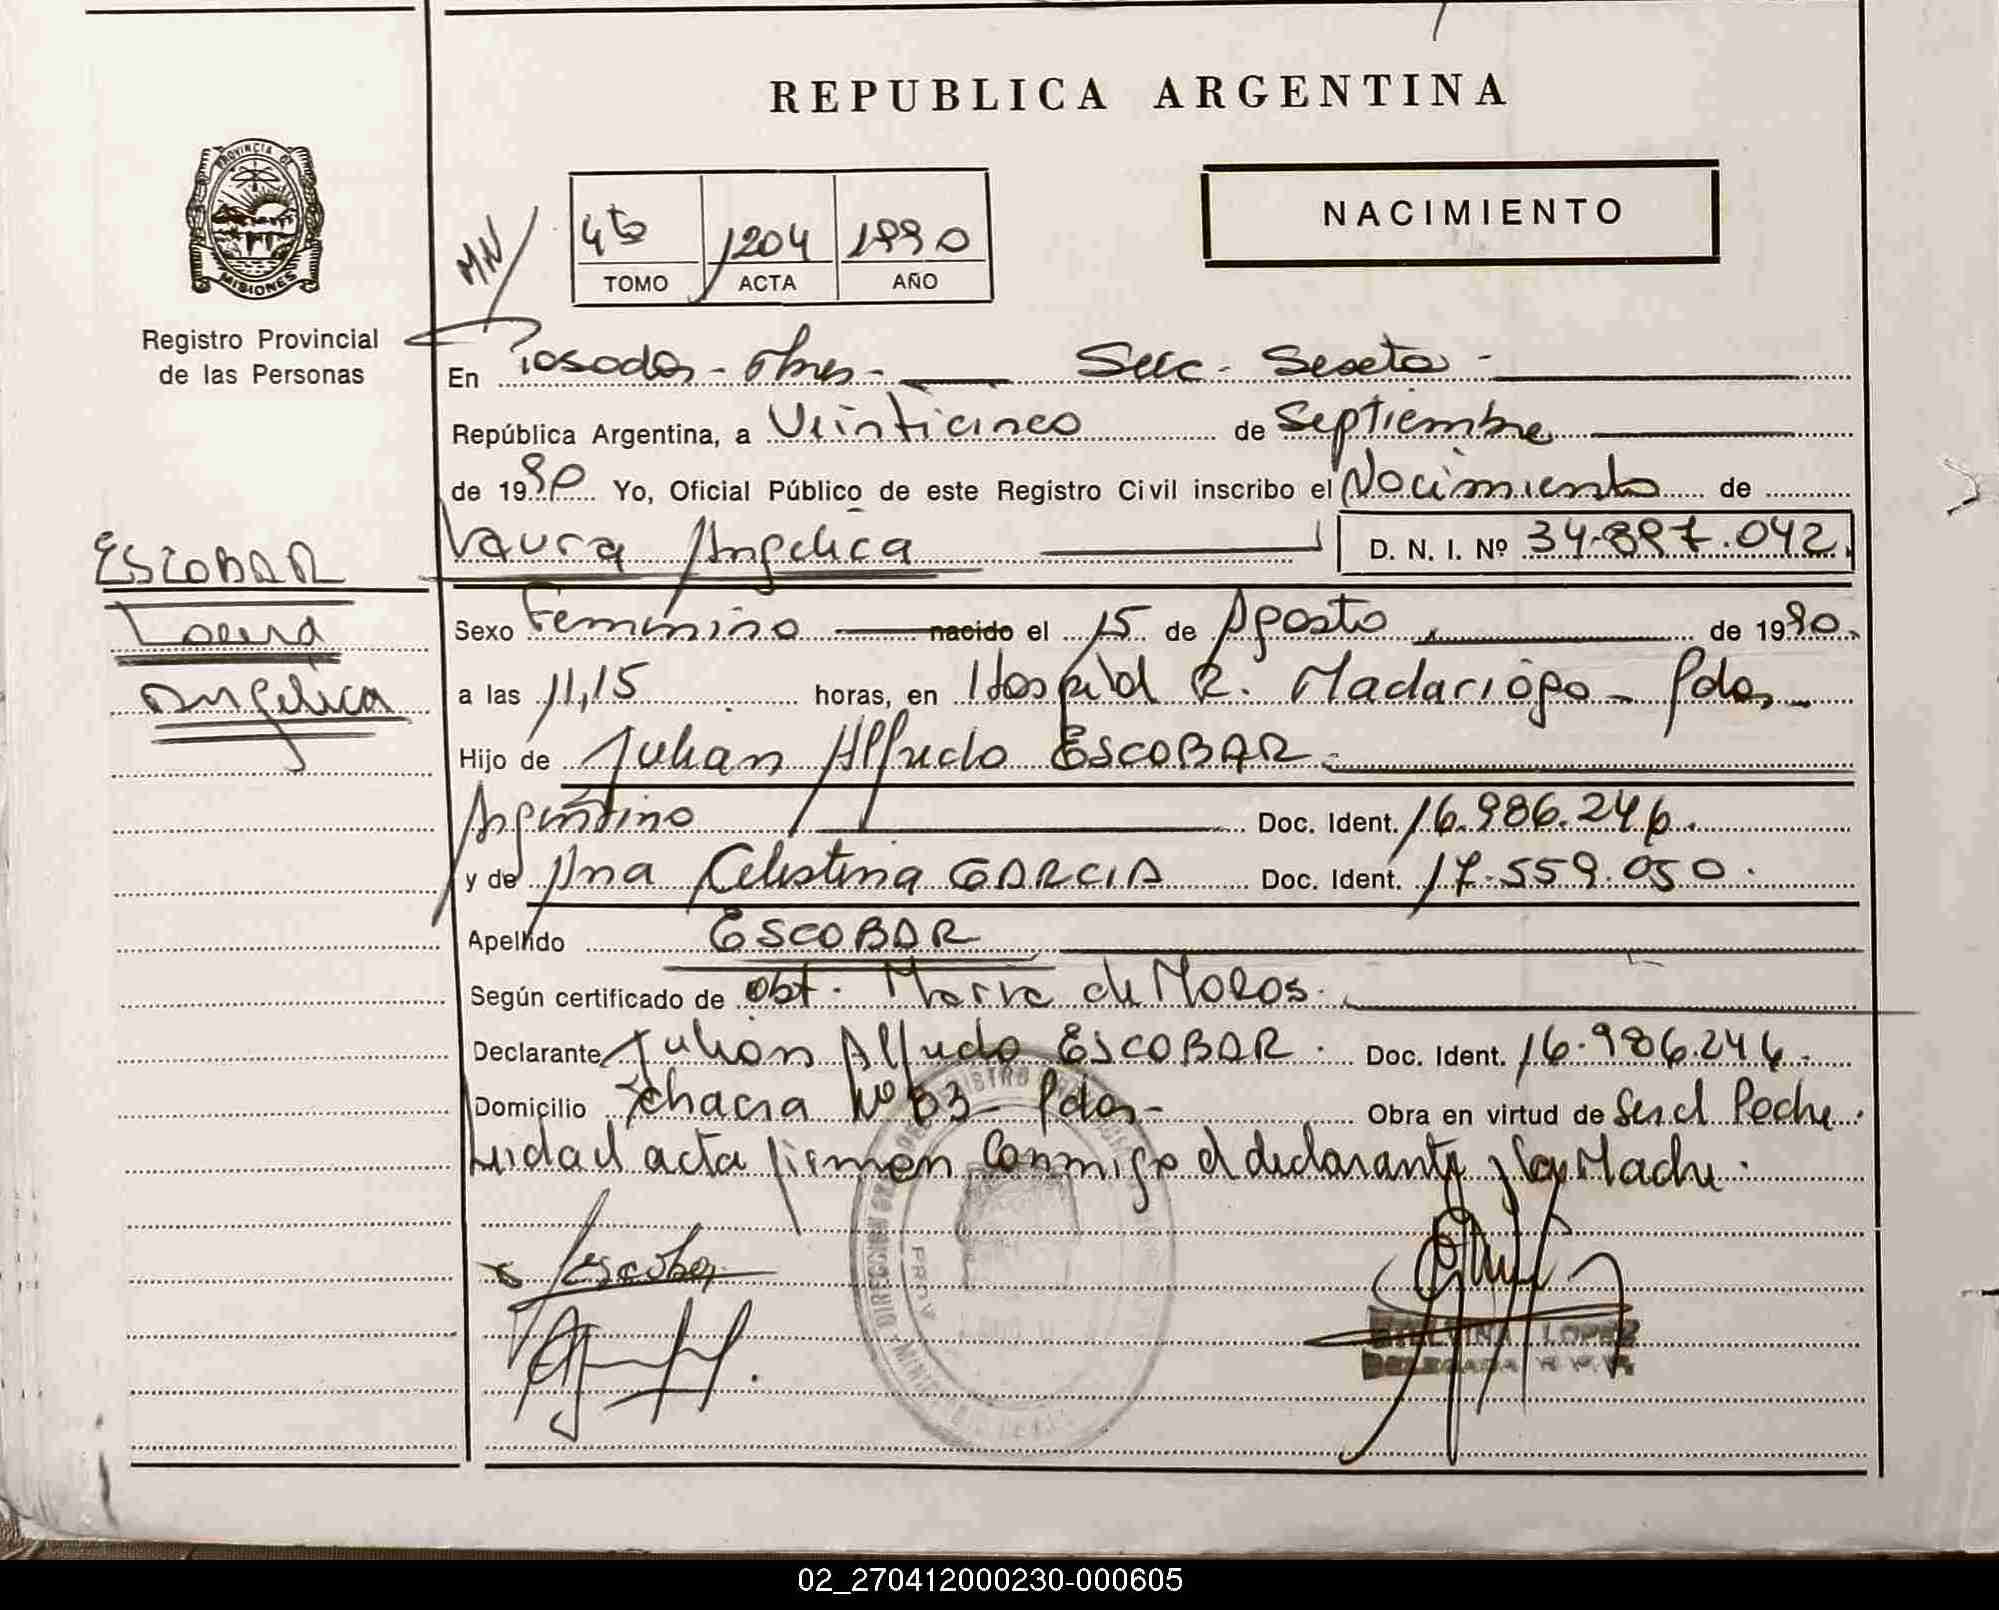 REPUBLICA ARGENTINA
PROVINCIA DE
MISIONES
Registro Provincial
de las Personas
MN
4to 1204 1990
TOMO ACTA AÑO
NACIMIENTO
En Posadas - Mnes - Secc. Sexta -
República Argentina, a Veinticinco de Septiembre
de 1990 Yo, Oficial Público de este Registro Civil inscribo el Nacimiento de
Laura Angelica D. N. I. Nº 34.897.042.
ESCOBAR
Laura
Angelica
Sexo Femenino nacido el 15 de Agosto de 1990.
a las 11,15 horas, en Hospital R. Madariaga - Pdas -
Hijo de Julian Alfredo ESCOBAR -
Argentino Doc. Ident. 16.986.246.
y de Ana Celestina GARCIA Doc. Ident. 17.559.050.
Apellido ESCOBAR
Según certificado de obt. Maria de Moros.
Declarante Julian Alfredo ESCOBAR. Doc. Ident. 16.986.246.
Domicilio chacra Nº 83 - Pdas - Obra en virtud de ser el Padre.
Leida el acta firman conmigo el declarante y la Madre.
Escobar
LOPEZ
DELEGADA R.P.P.
02_270412000230-000605